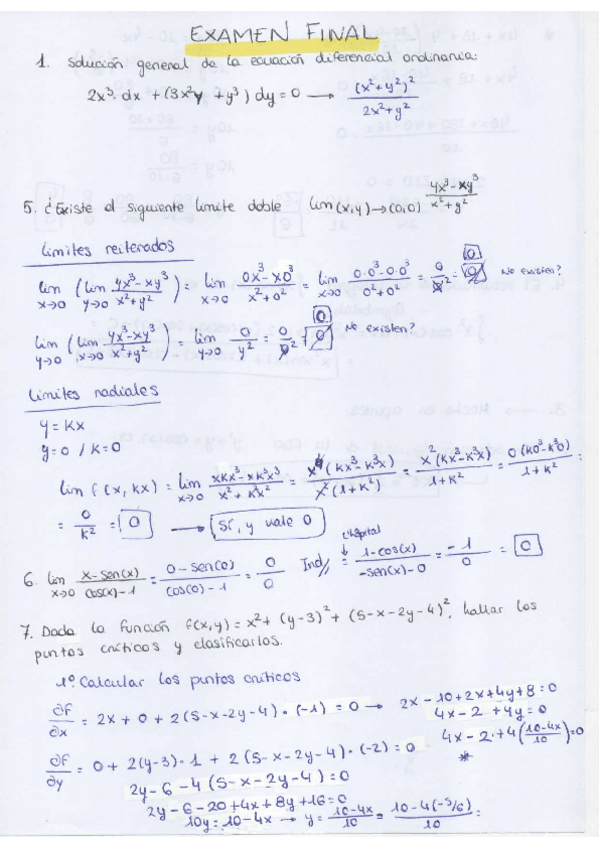 EXAMEN FINAL
1. Solución general de la ecuación diferencial ordinaria:
2x³ dx + (3x²y + y³) dy = 0 → (x²+y²)² / 2x²+y²
5. ¿Existe el siguiente límite doble lim (x,y)→(0,0) yx³-xy³ / x²+y²
Límites reiterados
lim x→0 (lim y→0 yx³-xy³ / x²+y²) = lim x→0 0x³-x0³ / x²+0² = lim x→0 0·0³-0·0³ / 0²+0² = 0 No existen?
lim y→0 (lim x→0 yx³-xy³ / x²+y²) = lim y→0 0 / y² = 0 No existen?
Límites radiales
y = Kx
y=0 / K=0
lim f(x, kx) = lim x→0 xkx³-xk³x³ / x²+k²x² = x⁴(kx³-k³x) / x²(1+k²) = x²(kx³-k³x) / 1+k² = 0(k0³-k³0) / 1+k² =
= 0 / k² = 0 → Sí, y vale 0
6. lim x→0 x-sen(x) / cos(x)-1 = 0-sen(0) / cos(0)-1 = 0 / 0 Ind// L'hôpital = 1-cos(x) / -sen(x)-0 = -1 / 0 = 0
7. Dada la función f(x,y) = x²+(y-3)²+(5-x-2y-4)², hallar los
puntos críticos y clasificarlos.
1º Calcular los puntos críticos
∂f/∂x = 2x+0+2(5-x-2y-4)·(-1) = 0 → 2x-10+2x+4y+8=0
4x-2+4y=0
4x-2+4(10-4x / 10)=0
*
∂f/∂y = 0+2(y-3)·1+2(5-x-2y-4)·(-2) = 0
2y-6-4(5-x-2y-4)=0
2y-6-20+4x+8y+16=0
10y=10-4x → y= 10-4x / 10 = 10-4(-5/6) / 10 =